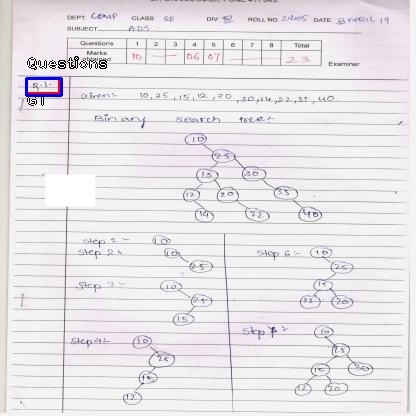 DEPT. COMP CLASS SE DIV ROLL NO. 212105 DATE 8 APRIL 19
SUBJECT ADS
Questions 1 2 3 4 5 6 7 8 Total
Marks 10 — — 06 07 — — 23
Examiner
Questions
Q.1.
Q1
Given:- 10, 25, 15, 12, 20, 30, 14, 22, 35, 40.
Binary search tree:-
10
25
15 30
12 20 35
14 22 40
Step 1:- 10
Step 2:- 10
25
Step 3:- 10
25
15
Step 4:- 10
25
15
12
Step 6:- 10
25
15
12 20
Step 7:- 10
25
15 30
12 20